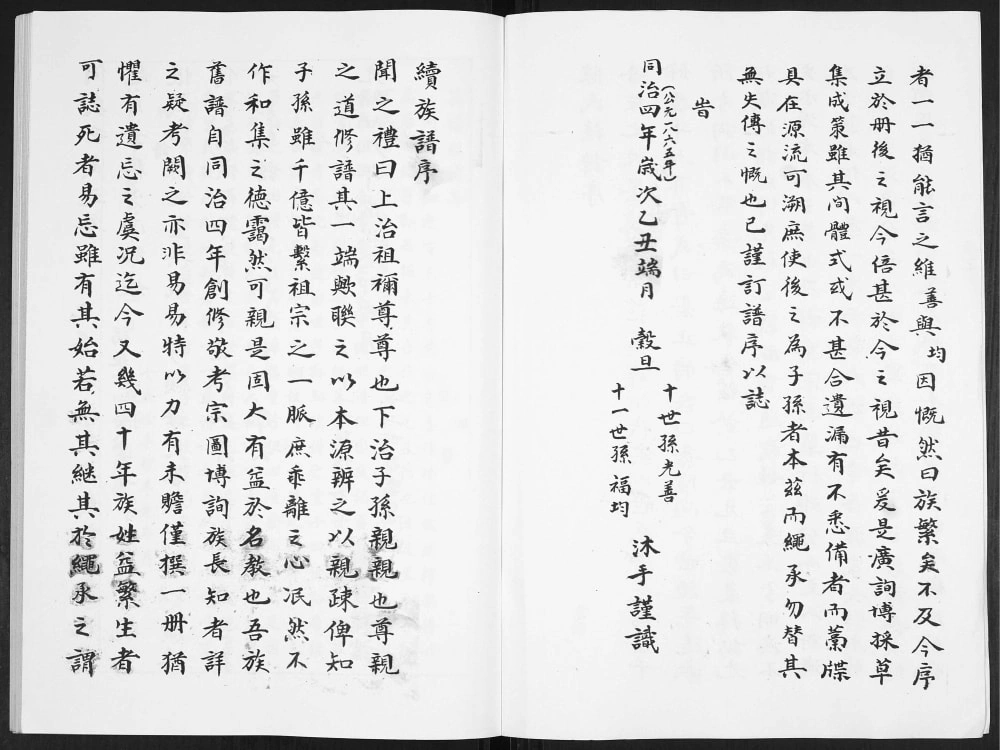 者一一猶能言之維善與均因慨然曰族繁矣不及今序
立於册後之視今倍甚於今之視昔矣爰是廣詢博採草
集成策雖其间體式或不甚合遺漏有不悉備者而藁牒
具在源流可溯庶使後之為子孫者本茲而繩承勿替其
無失傳之慨也已謹訂譜序以誌
旹
同治四年(公元一八六五年)歲次乙丑端月 穀旦
十世孫光善
十一世孫福均
沐手謹識
續族譜序
聞之禮曰上治祖禰尊尊也下治子孫親親也尊親
之道修譜其一端歟聯之以本源辨之以親疎俾知
子孫雖千億皆繫祖宗之一脈庶乖離之心泯然不
作和集之德靄然可親是固大有益於名教也吾族
舊譜自同治四年創修敬考宗圖博詢族長知者詳
之疑考闕之亦非易易特以力有未贍僅撰一册猶
懼有遺忘之虞况迄今又幾四十年族姓益繁生者
可誌死者易忌雖有其始若無其継其於繩承之謂